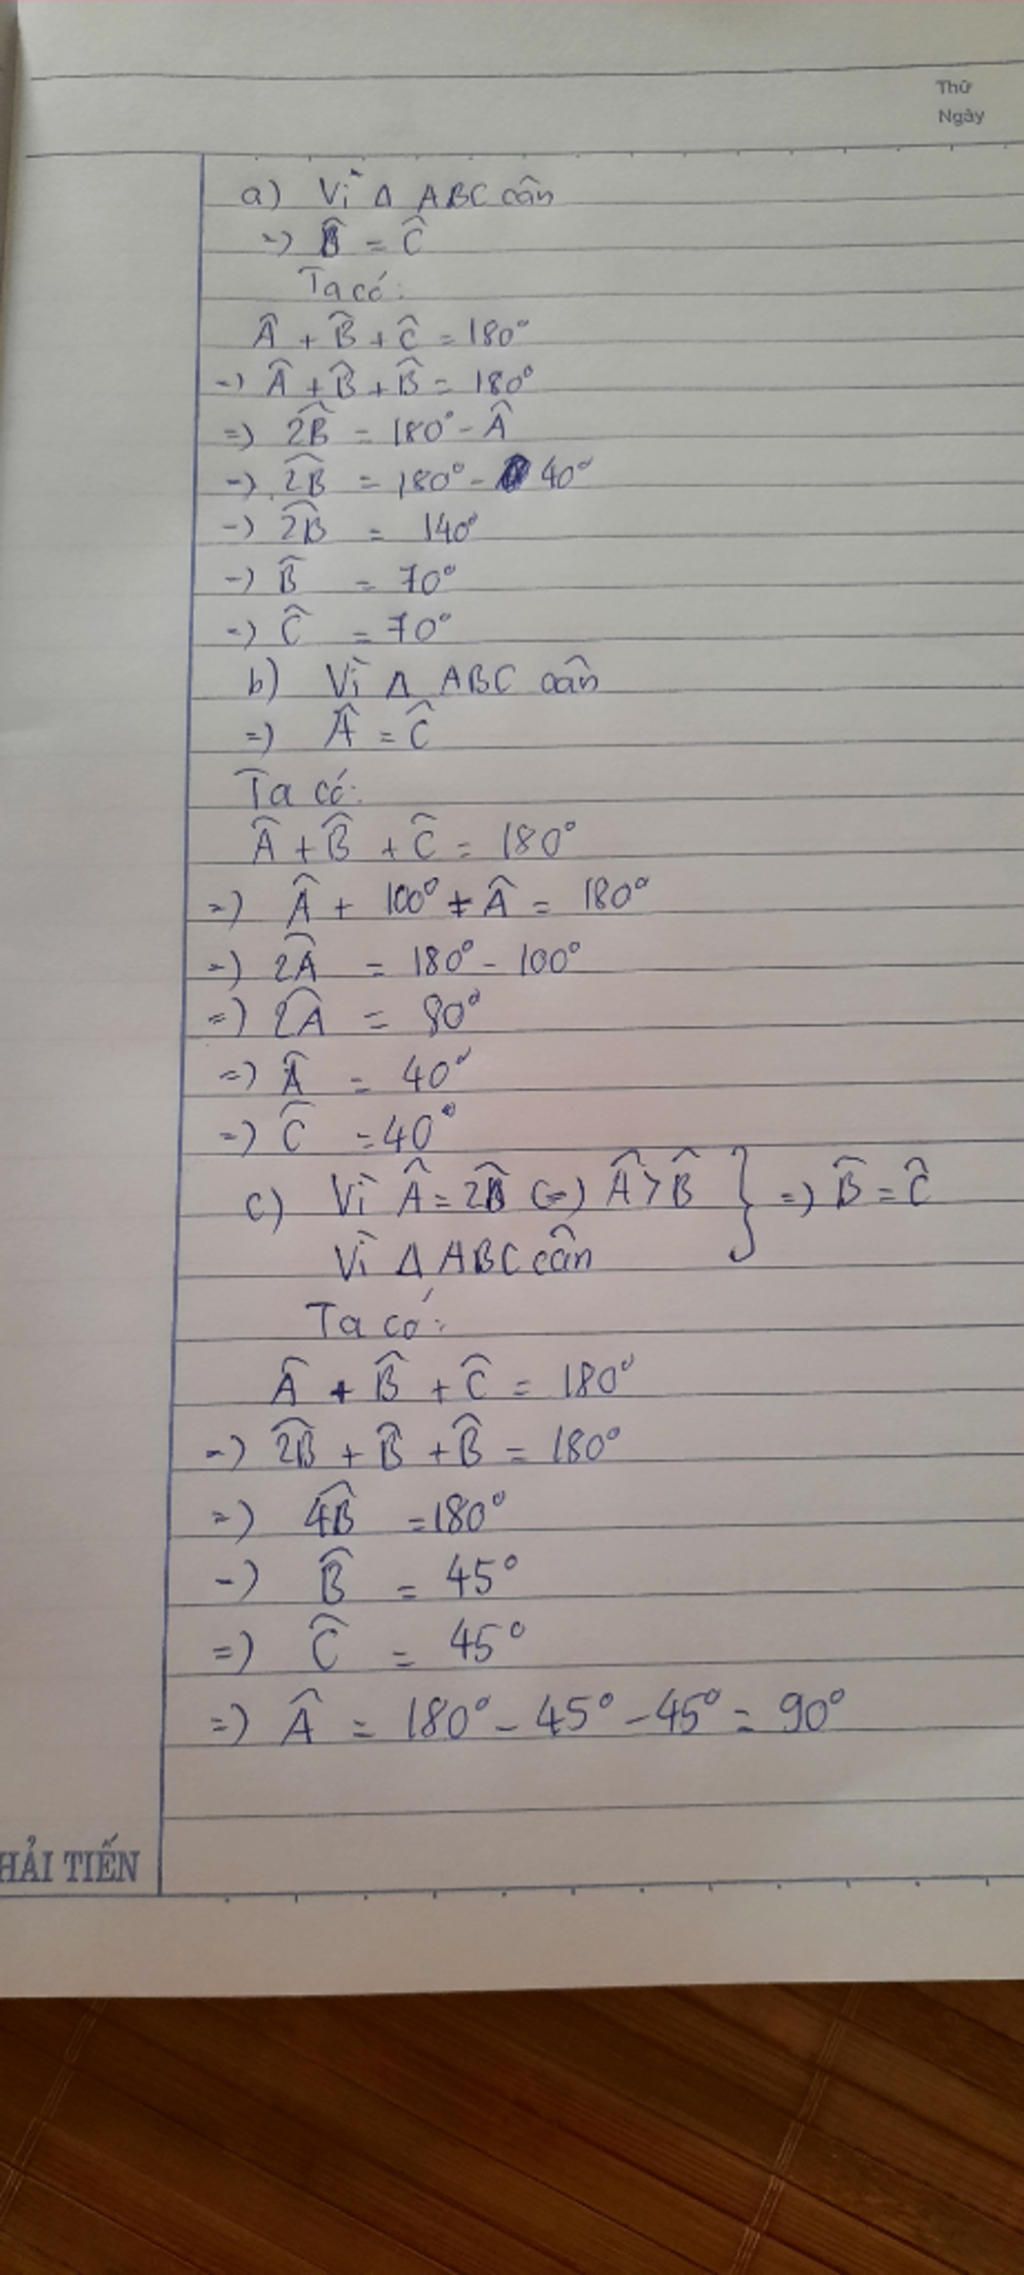 Thứ
Ngày
a) Vì Δ ABC cân
=) B̂ = Ĉ
Ta có:
Â + B̂ + Ĉ = 180°
=) Â + B̂ + B̂ = 180°
=) 2B̂ = 180° - Â
=) 2B̂ = 180° - 40°
=) 2B̂ = 140°
=) B̂ = 70°
=) Ĉ = 70°
b) Vì Δ ABC cân
=) Â = Ĉ
Ta có:
Â + B̂ + Ĉ = 180°
=) Â + 100° + Â = 180°
=) 2Â = 180° - 100°
=) 2Â = 80°
=) Â = 40°
=) Ĉ = 40°
c) Vì Â = 2B̂ (=) Â > B̂ } =) B̂ = Ĉ
Vì Δ ABC cân
Ta có:
Â + B̂ + Ĉ = 180°
=) 2B̂ + B̂ + B̂ = 180°
=) 4B̂ = 180°
=) B̂ = 45°
=) Ĉ = 45°
=) Â = 180° - 45° - 45° = 90°
HẢI TIẾN